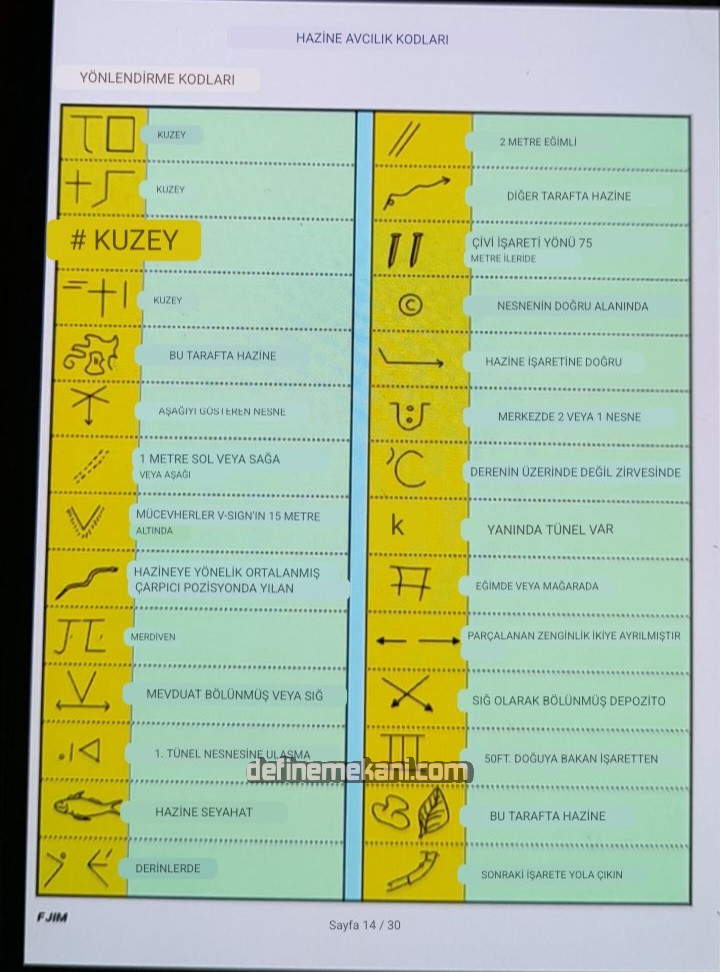 HAZİNE AVCILIK KODLARI
YÖNLENDİRME KODLARI
KUZEY
KUZEY
# KUZEY
KUZEY
BU TARAFTA HAZİNE
AŞAĞIYI GÖSTEREN NESNE
1 METRE SOL VEYA SAĞA
VEYA AŞAĞI
MÜCEVHERLER V-SIGN'IN 15 METRE
ALTINDA
HAZİNEYE YÖNELİK ORTALANMIŞ
ÇARPICI POZİSYONDA YILAN
MERDİVEN
MEVDUAT BÖLÜNMÜŞ VEYA SIĞ
1. TÜNEL NESNESİNE ULAŞMA
HAZİNE SEYAHAT
DERİNLERDE
2 METRE EĞİMLİ
DİĞER TARAFTA HAZİNE
ÇİVİ İŞARETİ YÖNÜ 75
METRE İLERİDE
©
NESNENİN DOĞRU ALANINDA
HAZİNE İŞARETİNE DOĞRU
MERKEZDE 2 VEYA 1 NESNE
DERENİN ÜZERİNDE DEĞİL ZİRVESİNDE
k
YANINDA TÜNEL VAR
EĞİMDE VEYA MAĞARADA
PARÇALANAN ZENGİNLİK İKİYE AYRILMIŞTIR
SIĞ OLARAK BÖLÜNMÜŞ DEPOZİTO
50FT. DOĞUYA BAKAN İŞARETTEN
BU TARAFTA HAZİNE
SONRAKİ İŞARETE YOLA ÇIKIN
definemekani.com
FJIM
Sayfa 14 / 30